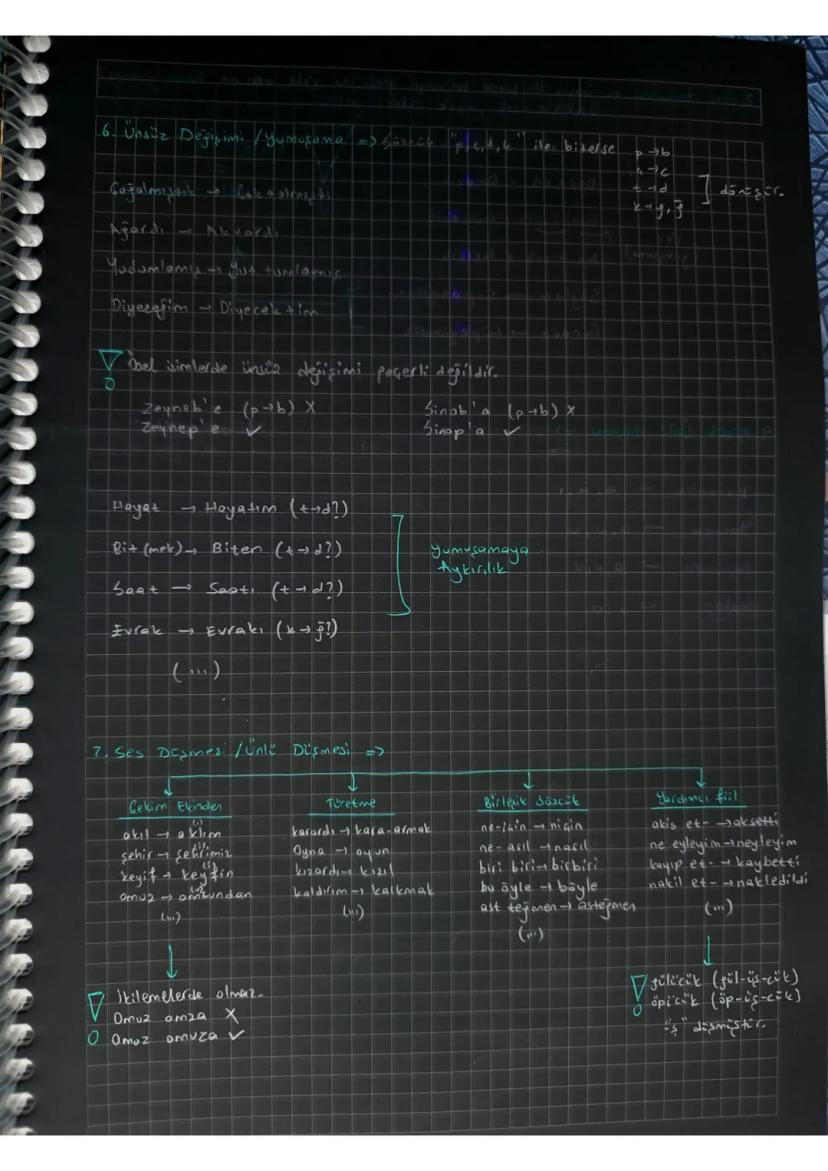 6. Ünsüz Değişimi / Yumuşama => Sözcük "p,ç,t,k" ile biterse
p → b
ç → c
t → d
k → g, ğ
] dönüşür.
Çoğalmıştık → Çok + almıştı
Ağardı → Ak + ardı
Yudumlamış → Yut + umlamış
Diyeceğim → Diyecek + im
! Özel isimlerde ünsüz değişimi geçerli değildir.
Zeyneb'e (p→b) X Sinob'a (p→b) X
Zeynep'e ✓ Sinop'a ✓
Hayat → Hayatım (t→d?)
Bit (mek) → Biten (t→d?)
Saat → Saati (t→d?)
Evrak → Evrakı (k→ğ?)
(...)
Yumuşamaya
Aykırılık
7. Ses Düşmesi / Ünlü Düşmesi =>
Çekim Ekinden
akıl → aklım (ı)
şehir → şehrimiz (i)
keyif → keyfin (i)
omuz → omzundan (u)
(...)
! İkilemelerde olmaz.
Omuz omza X
Omuz omuza ✓
Türetme
karardı → kara-armak
Oyna → oyun
kızardı → kızıl
kaldırım → kalkmak
(...)
Birleşik Sözcük
ne-için → niçin
ne-asıl → nasıl
biri biri → birbiri
bu öyle → böyle
ast teğmen → asteğmen
(...)
Yardımcı fiil
akis et- → aksetti
ne eyleyim → neyleyim
kayıp et- → kaybetti
nakil et- → nakledildi
(...)
! gülücük (gül-üş-cük)
öpücük (öp-üş-cük)
"ş" düşmüştür.